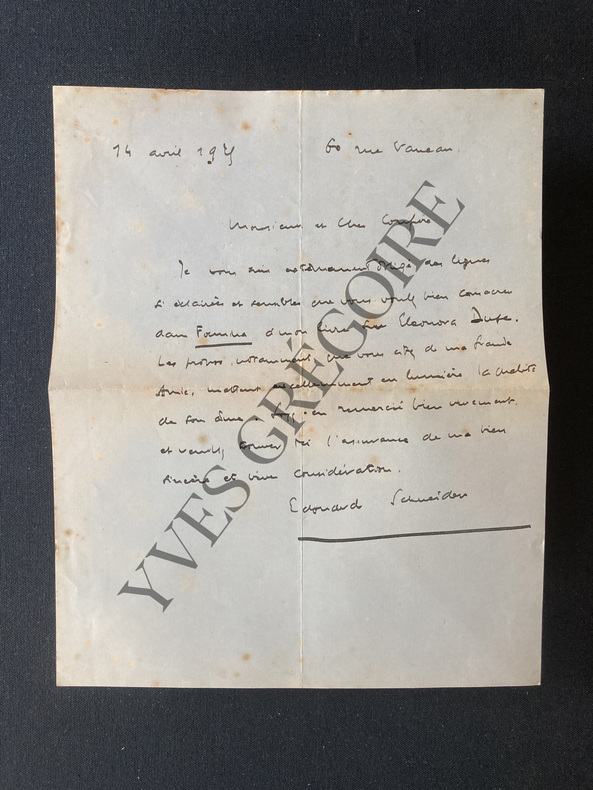 14 avril 1925 60 rue Vaneau.
Monsieur et Cher Confrère
Je vous suis extrêmement obligé des lignes
si éclairées et sensibles que vous voulez bien consacrer
dans Foemina à mon livre sur Eleonora Duse.
Les propos, notamment, que vous citez de ma Grande
Amie, mettent excellemment en lumière la qualité
de son âme. Soyez-en remercié bien vivement
et veuillez trouver ici l'assurance de ma bien
sincère et vive considération.
Edouard Schneider
YVES GRÉGOIRE